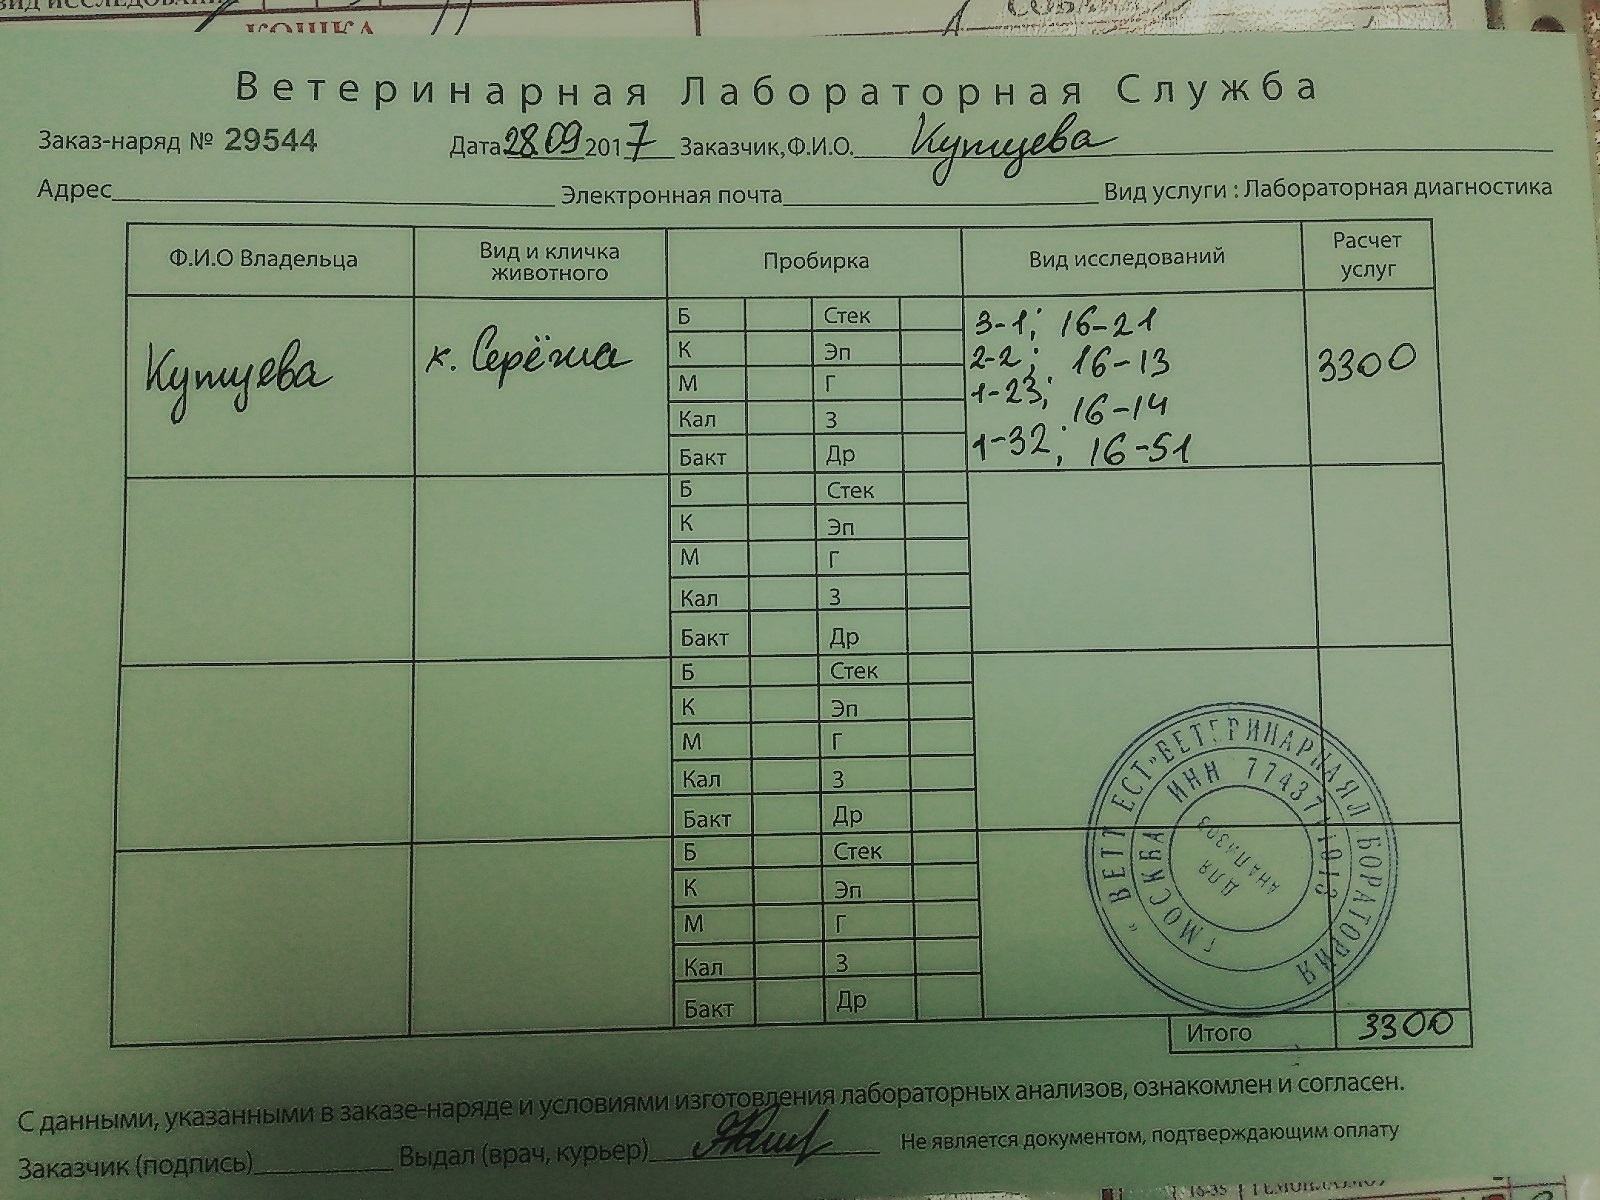 КОШКА
Ветеринарная Лабораторная Служба
Заказ-наряд № 29544 Дата 28.09 2017 Заказчик,Ф.И.О. Купцева
Адрес Электронная почта Вид услуги : Лабораторная диагностика
Ф.И.О Владельца Вид и кличка животного Пробирка Вид исследований Расчет услуг
Купцева к. Серёжа 3300
Б Стек 3-1; 16-21
К Эп 2-2; 16-13
М Г 1-23;
Кал З 16-14
Бакт Др 1-32; 16-51
Б Стек
К Эп
М Г
Кал З
Бакт Др
Б Стек
К Эп
М Г
Кал З
Бакт Др
Б Стек
К Эп
М Г
Кал З
Бакт Др
ВЕТЕРИНАРНАЯ ЛАБОРАТОРИЯ
Г.МОСКВА ИНН
ДЛЯ
АНАЛИЗОВ
Итого 3300
С данными, указанными в заказе-наряде и условиями изготовления лабораторных анализов, ознакомлен и согласен.
Заказчик (подпись) Выдал (врач, курьер) Не является документом, подтверждающим оплату
16-35